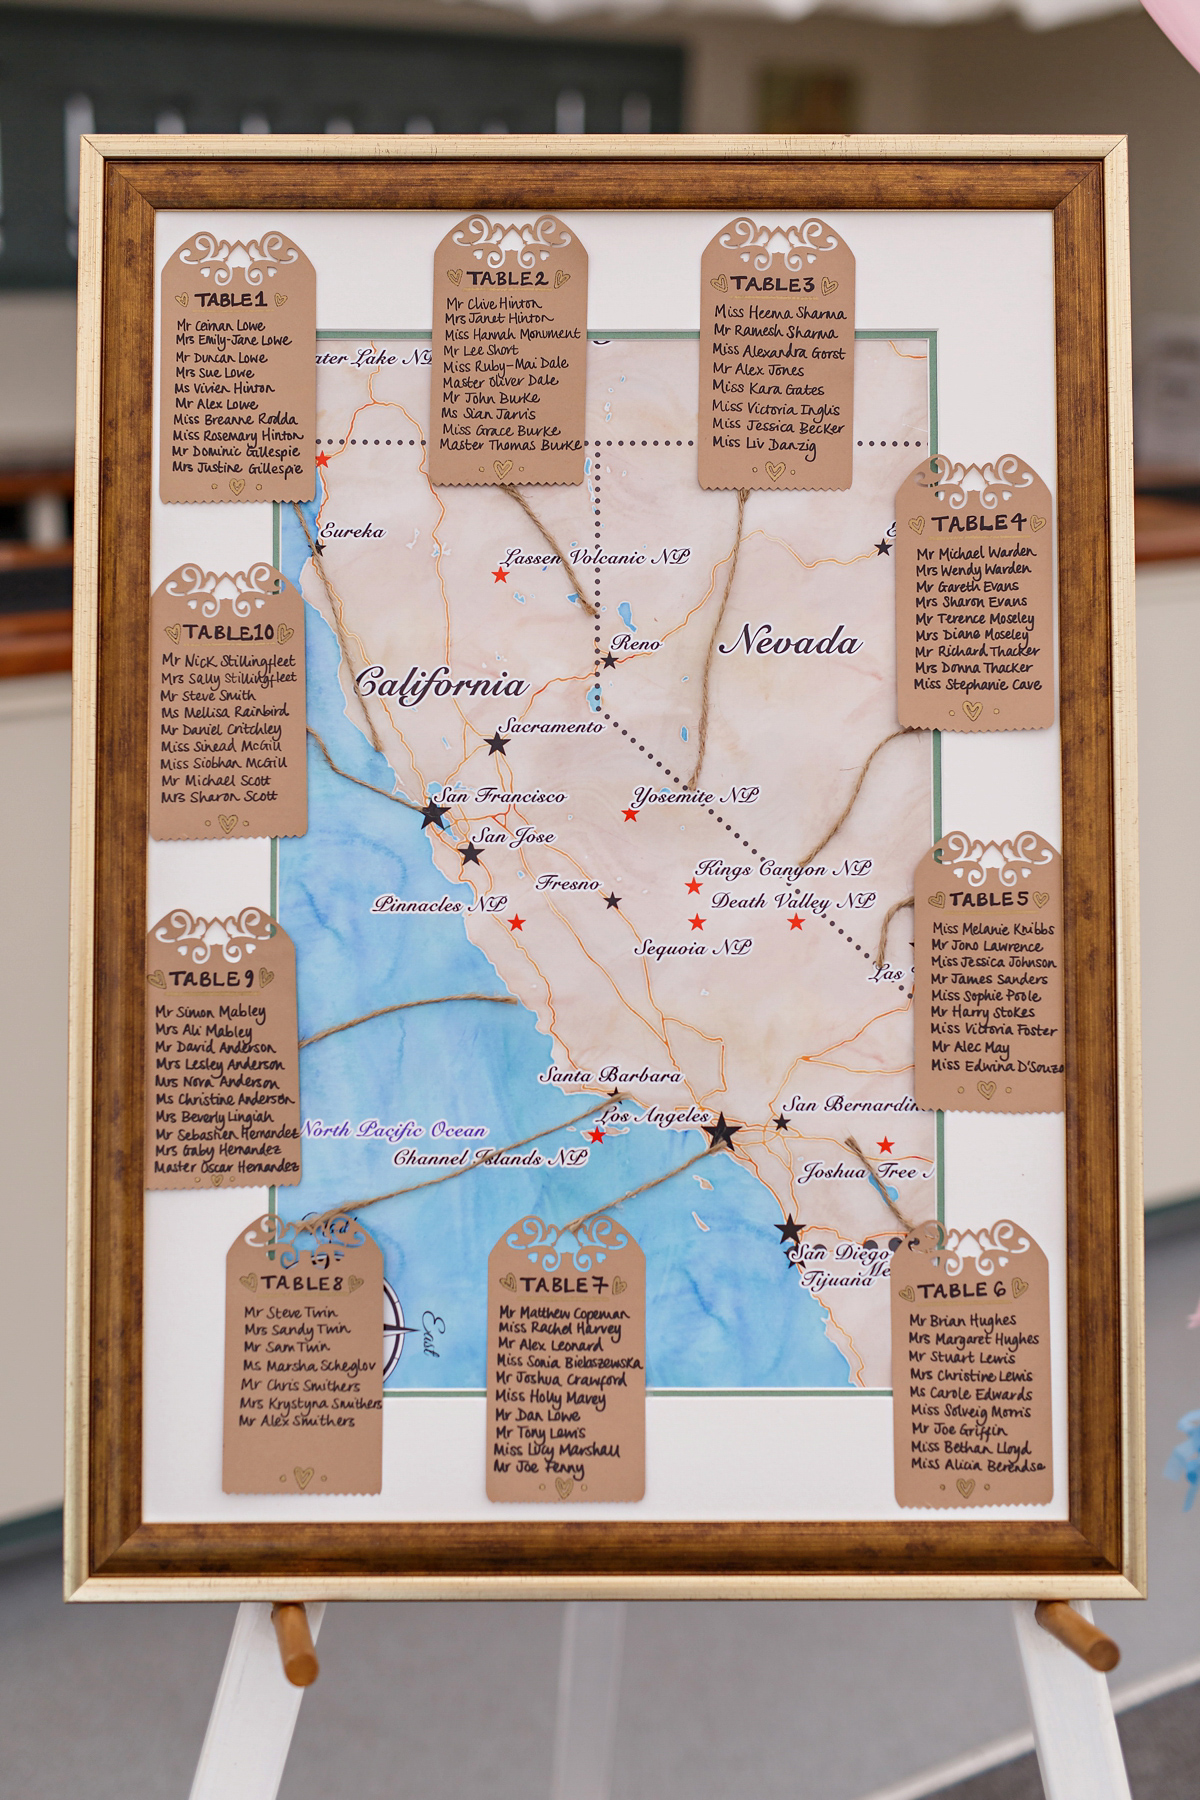 TABLE 1
Mr Ceinan Lowe
Mrs Emily-Jane Lowe
Mr Duncan Lowe
Mrs Sue Lowe
Ms Vivien Hinton
Mr Alex Lowe
Miss Breanne Rodda
Miss Rosemary Hinton
Mr Dominic Gillespie
Mrs Justine Gillespie
TABLE 2
Mr Clive Hinton
Mrs Janet Hinton
Miss Hannah Monument
Mr Lee Short
Miss Ruby-Mai Dale
Master Oliver Dale
Mr John Burke
Ms Sian Jarvis
Miss Grace Burke
Master Thomas Burke
TABLE 3
Miss Heema Sharma
Mr Ramesh Sharma
Miss Alexandra Gorst
Mr Alex Jones
Miss Kara Gates
Miss Victoria Inglis
Miss Jessica Becker
Miss Liv Danzig
TABLE 4
Mr Michael Warden
Mrs Wendy Warden
Mr Gareth Evans
Mrs Sharon Evans
Mr Terence Moseley
Mrs Diane Moseley
Mr Richard Thacker
Mrs Donna Thacker
Miss Stephanie Cave
TABLE 10
Mr Nick Stillingfleet
Mrs Sally Stillingfleet
Mr Steve Smith
Ms Mellisa Rainbird
Mr Daniel Critchley
Miss Sinead McGill
Miss Siobhan McGill
Mr Michael Scott
Mrs Sharon Scott
TABLE 5
Miss Melanie Knibbs
Mr Jono Lawrence
Miss Jessica Johnson
Mr James Sanders
Miss Sophie Poole
Mr Harry Stokes
Miss Victoria Foster
Mr Alec May
Miss Edwina D'Souza
TABLE 9
Mr Simon Mabley
Mrs Ali Mabley
Mr David Anderson
Mrs Lesley Anderson
Mrs Nora Anderson
Ms Christine Anderson
Mrs Beverly Lingiah
Mr Sebastien Hernandez
Mrs Gaby Hernandez
Master Oscar Hernandez
TABLE 8
Mr Steve Twin
Mrs Sandy Twin
Mr Sam Twin
Ms Marsha Scheglov
Mr Chris Smithers
Mrs Krystyna Smithers
Mr Alex Smithers
TABLE 7
Mr Matthew Copeman
Miss Rachel Harvey
Mr Alex Leonard
Miss Sonia Bielaszewska
Mr Joshua Crawford
Miss Holly Mavey
Mr Dan Lowe
Mr Tony Lewis
Miss Lucy Marshall
Mr Joe Penny
TABLE 6
Mr Brian Hughes
Mrs Margaret Hughes
Mr Stuart Lewis
Mrs Christine Lewis
Ms Carole Edwards
Miss Solveig Morris
Mr Joe Griffin
Miss Bethan Lloyd
Miss Alicia Berendse
ater Lake NP
Eureka
Lassen Volcanic NP
Reno
Nevada
California
Sacramento
San Francisco
Yosemite NP
San Jose
Kings Canyon NP
Fresno
Death Valley NP
Pinnacles NP
Sequoia NP
Las
Santa Barbara
Los Angeles
San Bernardin
North Pacific Ocean
Channel Islands NP
Joshua Tree
San Diego
Tijuana
Me
East